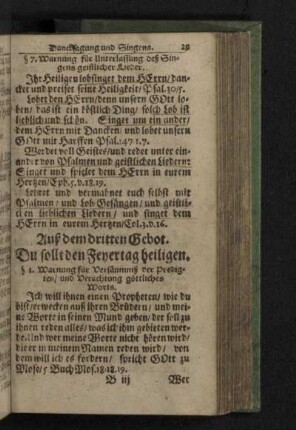 Dancksagung und Singens. 29
§ 7. Warnung für Unterlassung deß Sin-
gens geistlicher Lieder.
Ihr Heiligen lobsinget dem HErrn/ dan-
cket und preiset seine Heiligkeit/ Psal. 30/5.
Lobet den HErrn/ denn unsern GOtt lo-
ben/ das ist ein köstlich Ding/ solch Lob ist
lieblich und schön. Singet um einander/
dem HErrn mit Dancken/ und lobet unsern
GOtt mit Harffen Psal. 147 1.7.
Werdet voll Geistes/ und redet unter ein-
ander von Psalmen und geistlichen Liedern:
Singet und spielet dem HErrn in eurem
Hertzen/ Eph. 5. v. 18.19.
Lehret und vermahnet euch selbst mit
Psalmen/ und Lob-Gesängen/ und geistli-
chen lieblichen Liedern/ und singet dem
HErrn in eurem Hertzen/ Col. 3. v. 16.
Auß dem dritten Gebot.
Du sollt den Feyertag heiligen.
§ 1. Warnung für Versäumnüß der Predig-
ten/ und Verachtung göttliches
Worts.
Ich will ihnen einen Propheten/ wie du
bist/ erwecken auß ihren Brüdern/ und mei-
ne Worte in seinen Mund geben/ der soll zu
ihnen reden alles/ was ich ihm gebieten wer-
de. Und wer meine Worte nicht hören wird/
die er in meinem Namen reden wird/ von
dem will ich es fordern/ spricht GOtt zu
Mose/ 5 Buch Mos. 18. 18. 19.
B iij Wer